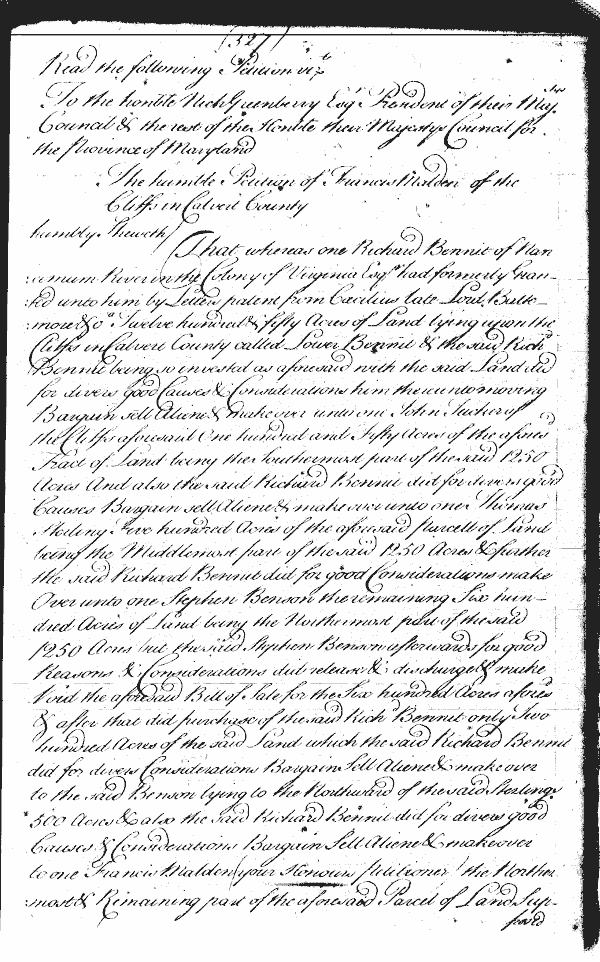 (327)
Read the following Petition vizt
To the honble Nich Greenberry Esqr President of their Majtys
Council & the rest of the Honble their Majestys Council for
the Province of Maryland
The humble Petition of Francis Malden of the
Cliffs in Calvert County
humbly Sheweth/
That whereas one Richard Bennit of Nan
:cemum River in the Colony of Virginia Esqr had formerly Gran=
:ted unto him by Letters patent from Cæcilius late Lord Balte=
more &ca Twelve hundred & fifty Acres of Land lying upon the
Cliffs in Calvert County called Lower Bennit & the said Richd
Bennit being so invested as aforesaid with the said Land did
for divers good Causes & Considerations him thereunto moving
Bargain sell Aliene & make over unto one John Tucker of
the Cliffs aforesaid One hundred and Fifty Acres of the afores
Tract of Land being the Southermost part of the said 1250
Acres And also the said Richard Bennit did for divers good
Causes Bargain sell Aliene & make over unto one Thomas
Sterling Five hundred Acres of the aforesaid parcell of Land
being the Middlemost part of the said 1250 Acres & further
the said Richard Bennit did for good Considerations make
Over unto one Stephen Benson the remaining Six hun=
dred Acres of Land being the Northermost part of the said
1250 Acres but the said Stephen Benson afterwards for good
Reasons & Considerations did release & discharge & make
Void the aforesaid Bill of Sale for the Six hundred Acres afores
& after that did purchase of the said Richd Bennit only Two
hundred Acres of the said Land which the said Richard Bennit
did for divers Considerations Bargain Sell Aliene & make over
to the said Benson lying to the Northward of the said Sterlings
500 Acres & also the said Richard Bennit did for divers good
Causes & Considerations Bargain Sell Aliene & make over
to one Francis Malden (your Honours Petitioner) the Norther
:most & Remaining part of the aforesaid Parcel of Land Sup=
posed